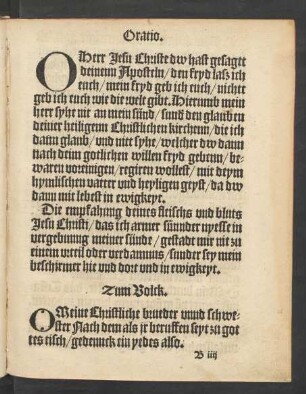 Oratio.
O Herr Jesu Christe dw hast gesaget
deinenn Aposteln / den fryd lasz ich
euch / mein fryd geb ich euch / nichte
geb ich euch wie die welt gibt. Hierumb mein
herr syhe nit an mein sünd / sund den glauben
deiner heiligenn Christlichen kirchenn / die ich
dann glaub / und nit syhe / welcher dw dann
nach deim gotlichen willen fryd gebenn / be-
waren voreinigen / regiren wollest / mit deym
hymlischen vatter und heyligen geyst / da dw
dann mit lebest in ewigkeyt.
Die empfahung deines fleischs und bluts
Jesu Christi / das ich armer sünder nyesse in
vergebunng meiner sünde / gestade mir nit zu
einem urteil oder verdamnus / sunder sey mein
beschirmer hie und dort und in ewigkeyt.
Zum Volck.
O Meine Christliche brueder vnnd schwe-
ster Nach dem als jr beruffen seyt zu got
tes tisch / gedennck ein yedes also.
B iiij